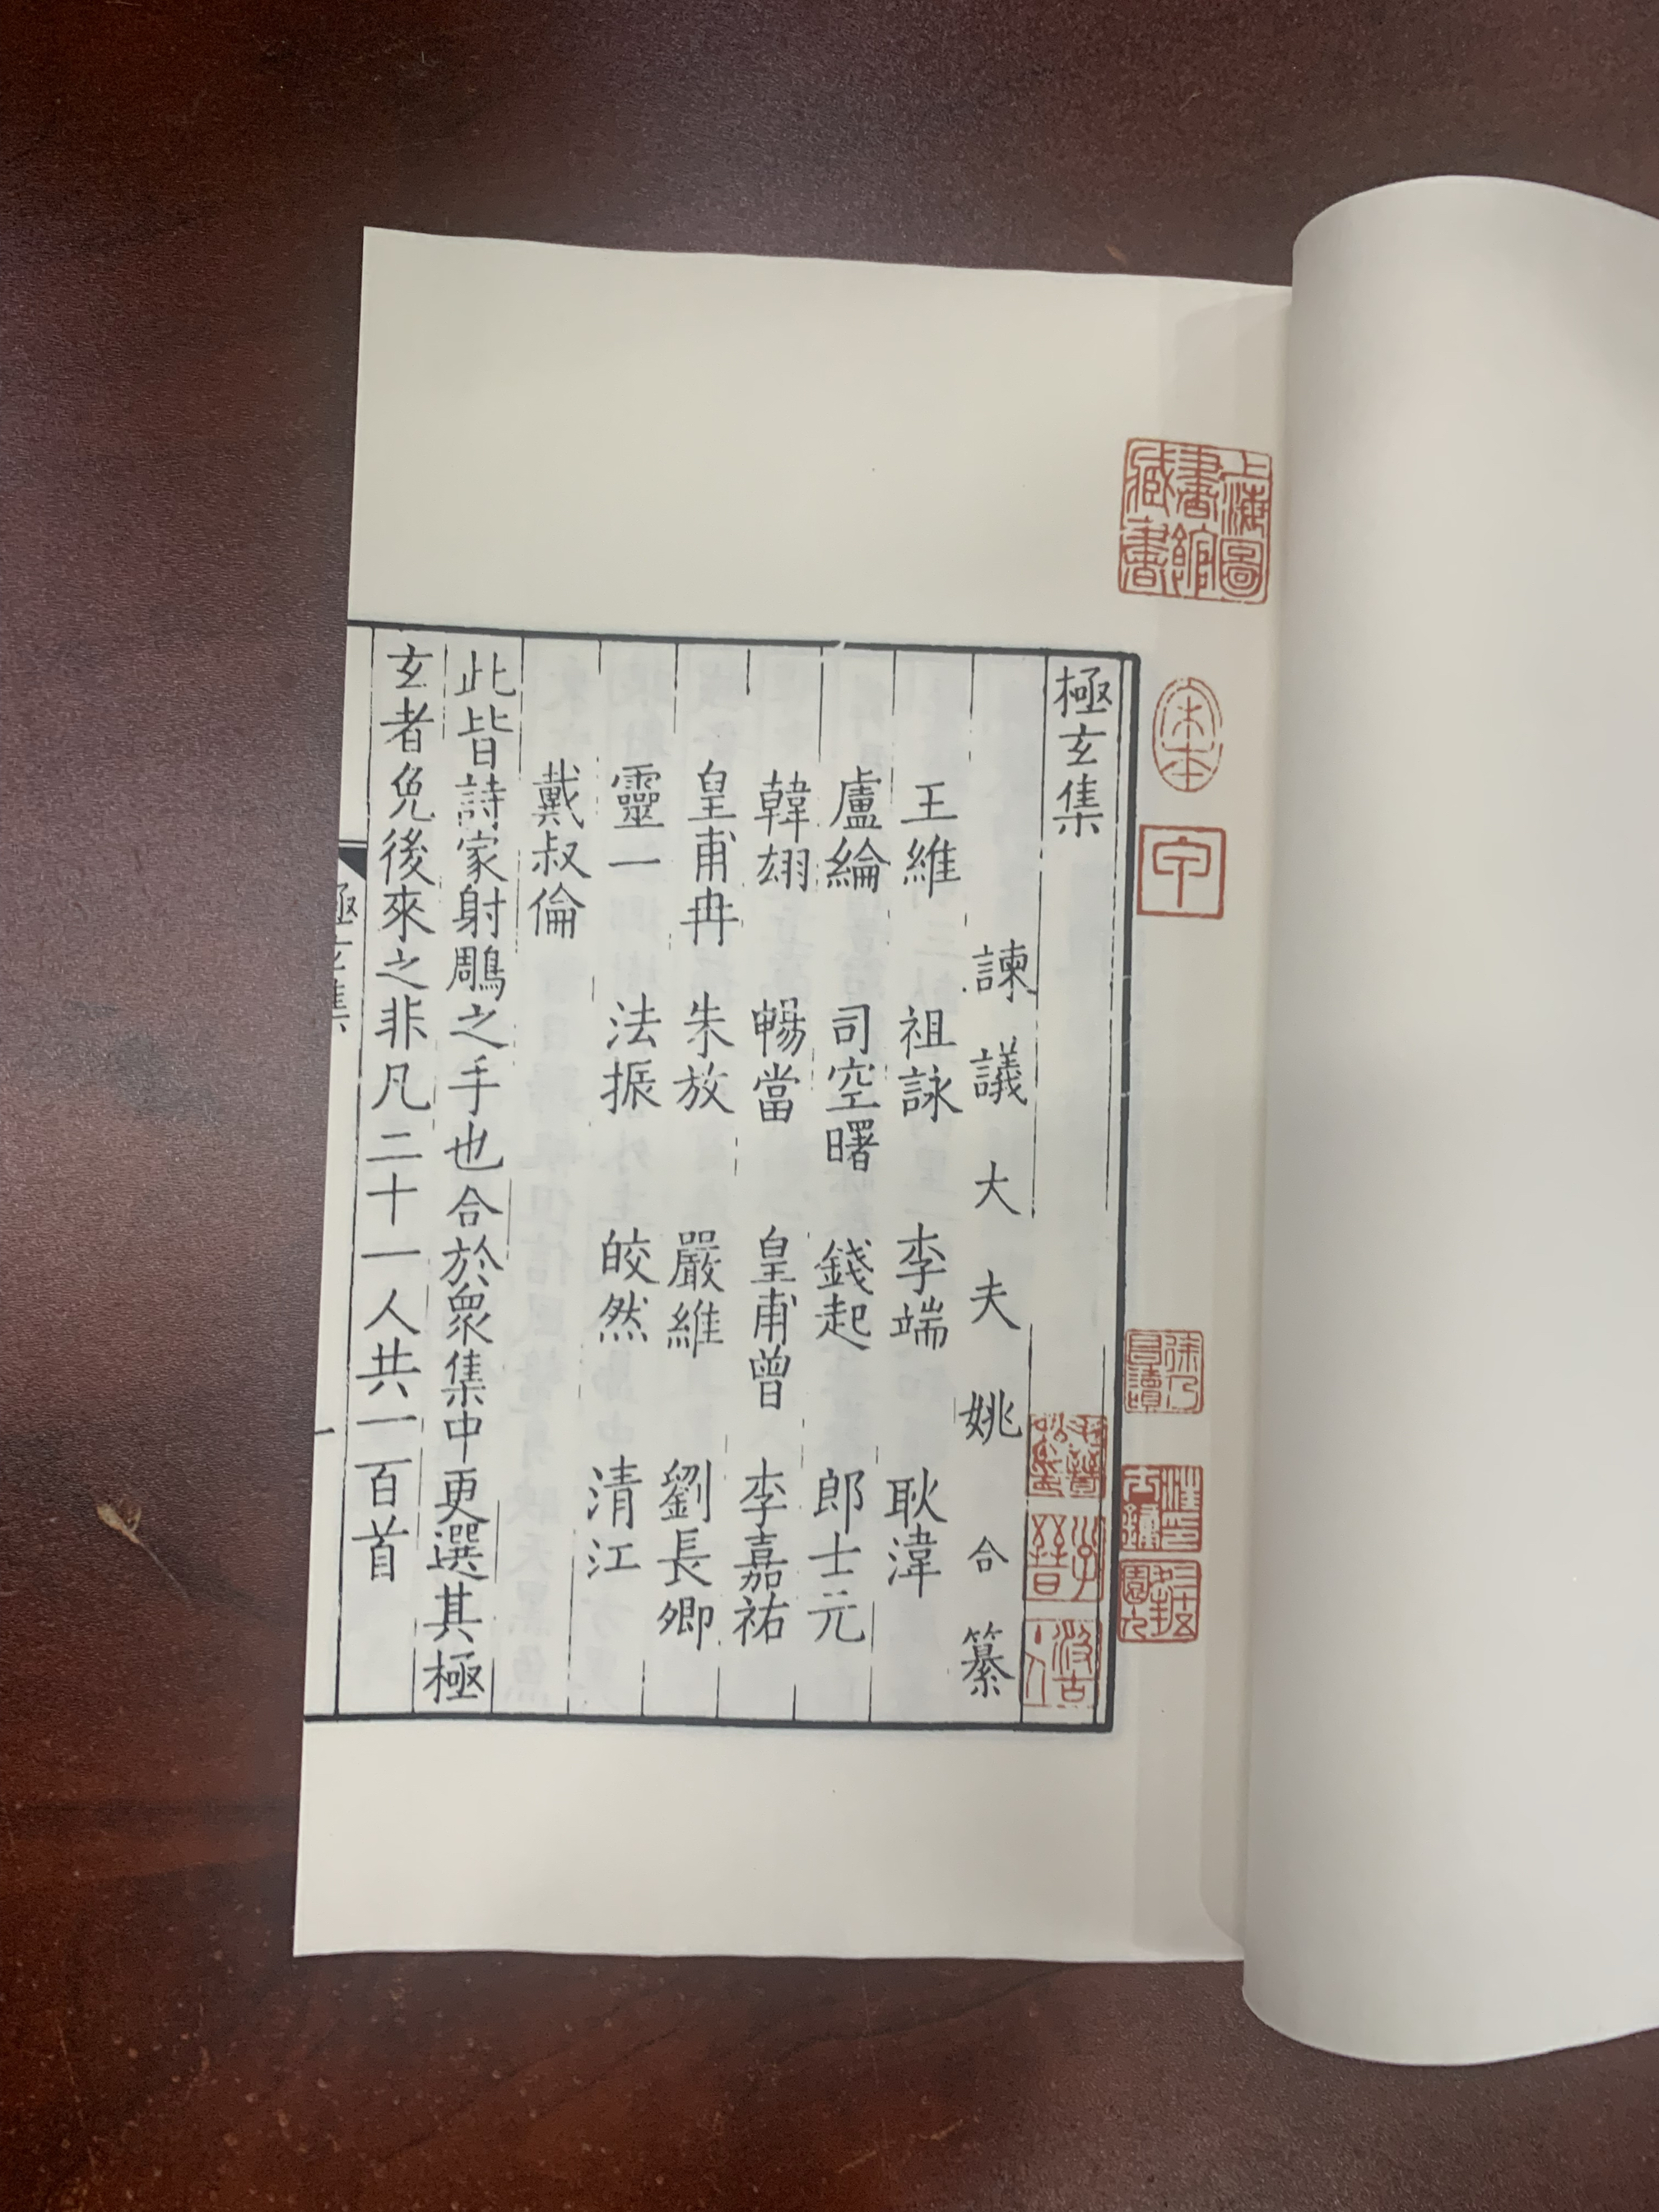 極玄集
諫議大夫姚合纂
王維 祖詠 李端 耿湋
盧綸 司空曙 錢起 郎士元
韓翃 暢當 皇甫曾 李嘉祐
皇甫冉 朱放 嚴維 劉長卿
靈一 法振 皎然 清江
戴叔倫
此皆詩家射鵰之手也合於衆集中更選其極
玄者免後來之非凡二十一人共一百首
極玄集
一
上海圖書館藏書
宋本
甲
徐乃昌讀
汲古主人